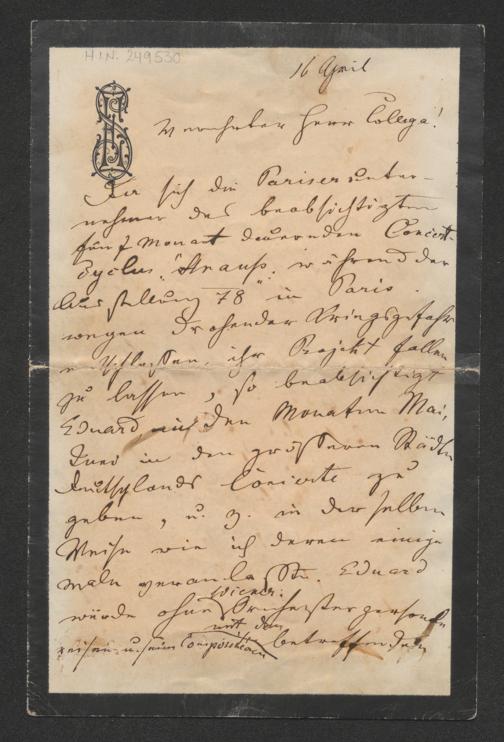 H.I.N. 249530
16 April
Verehrter Herr Collega!
Da sich die Pariser Unter-
nehmer des beabsichtigten
fünf Monat dauernden Concert-
Cyclus "Strauss" während der
Ausstellung 78 in Paris
wegen drohender Kriegsgefahr
entschlossen, ihr Projekt fallen
zu lassen, so beabsichtigt
Eduard in den Monaten Mai,
Juni in den grösseren Städten
Deutschlands Concerte zu
geben, u. z. in derselben
Weise wie ich deren einige
male veranlasste. Eduard
würde ohne Wiener Orchesterpersonale
reisen u. seine Compositionen mit den betreffenden